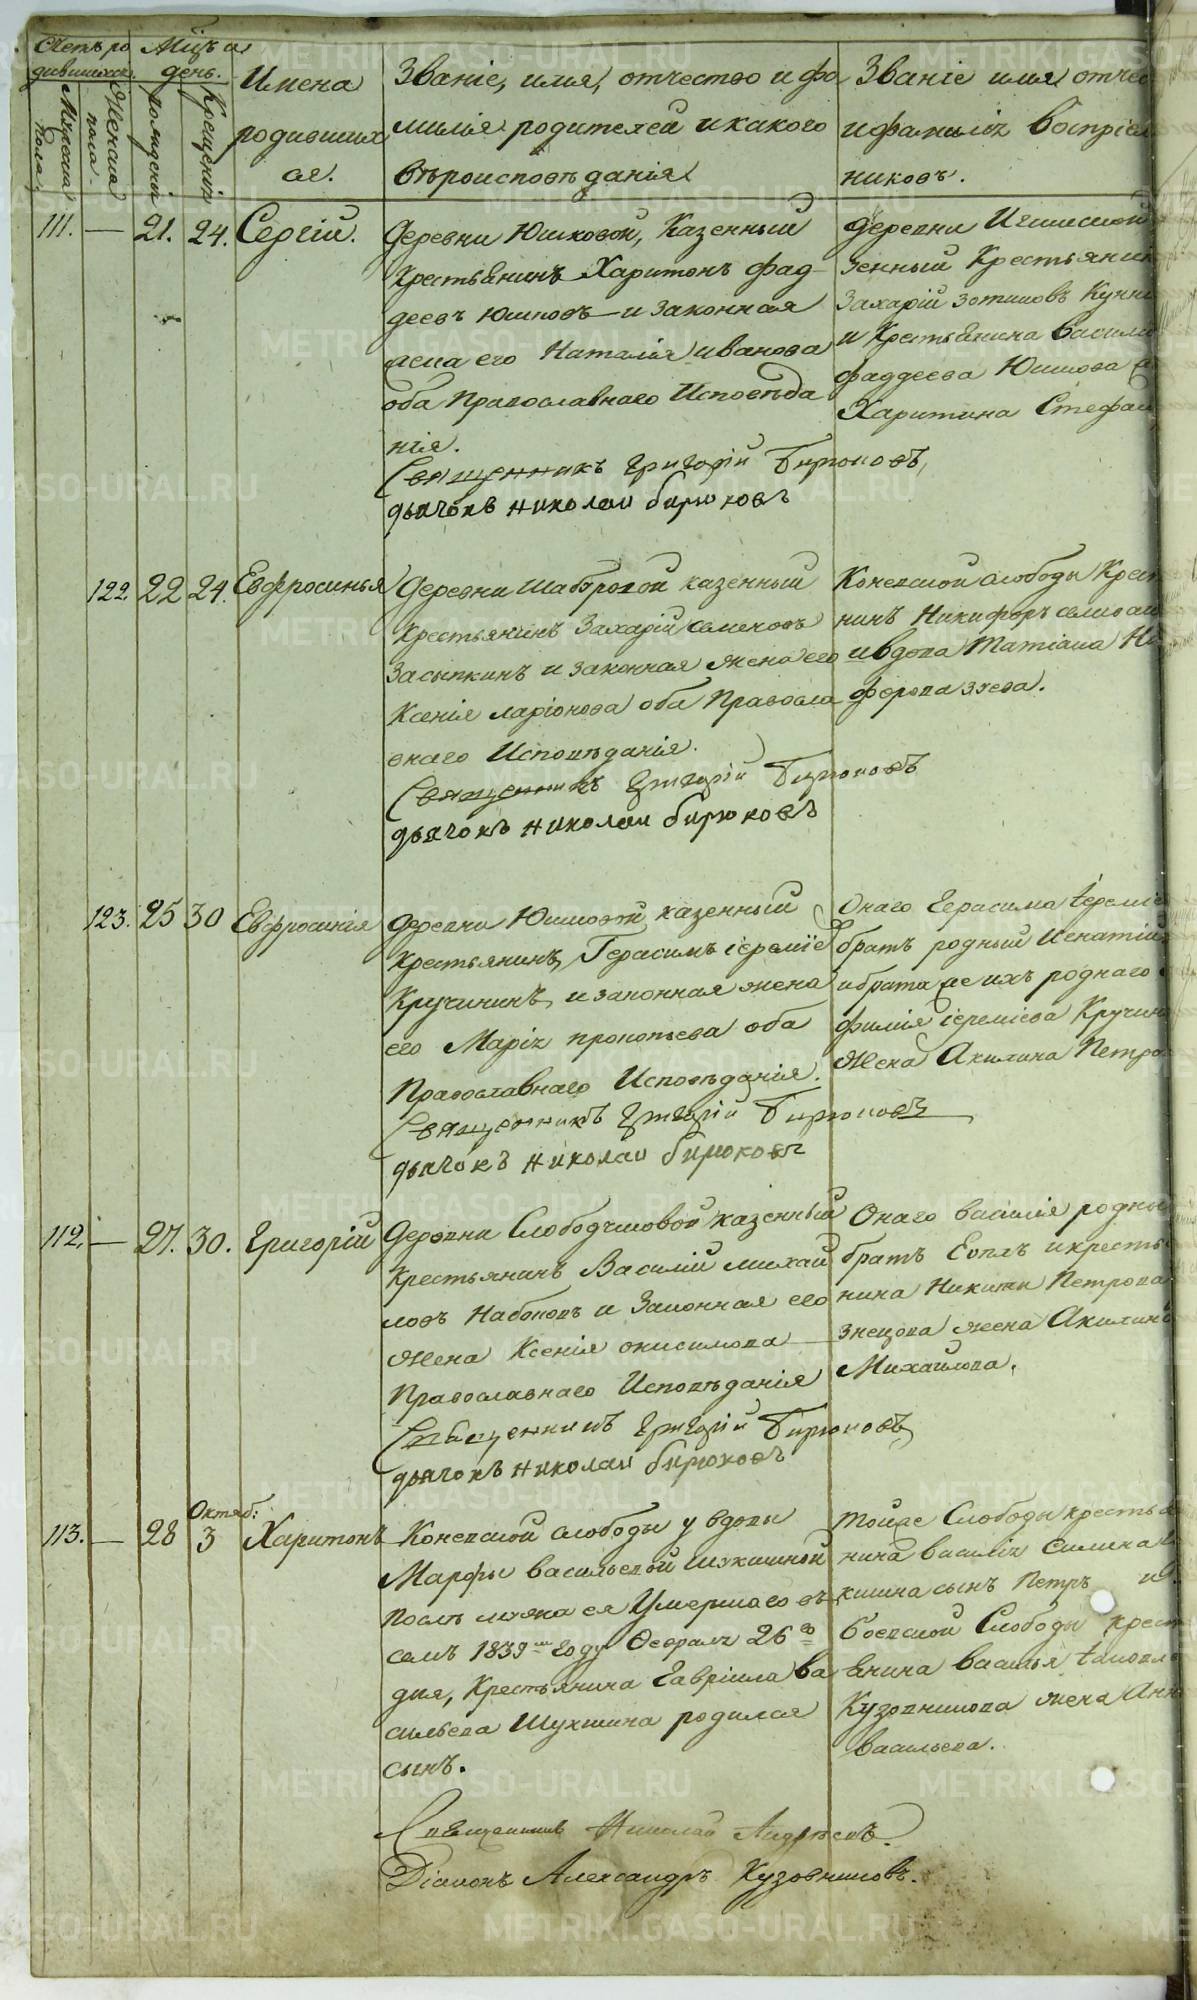 Счетъ ро
дившихся.
Мужеска
пола.
Женска
пола.
Мцъ и
день.
рожденія
Крещенія
Имена
родивших
ся.
Званіе, имя, отчество и фа
милія родителей и какого
вѣроисповѣданія
Званіе имя отчес
и фамилія Воспріем
никовъ.
111. — 21. 24. Сергій.
Деревни Юшковой, Казенный
Крестьянинъ Харитонъ фад
деевъ Юшковъ — и законная
жена его Наталія иванова
оба Православнаго Исповѣда
нія.
Священникъ Григорій Бирюковъ,
дьячокъ николай бирюковъ
Деревни
зенный Крестьянин
Захарій зотиковъ
и Крестьянина Васили
фаддеева Юшкова
Харитина Стефан
122. 22 24. Евфросинья
Деревни Шабровой казенный
Крестьянинъ Захарій семеновъ
Засыпкинъ и законная жена его
Ксенія ларіонова оба Правосла
внаго Исповѣданія.
Священникъ Григорій Бирюковъ
дьячокъ николай бирюковъ
Коневской слободы Крест
нинъ Никифоръ
и вдова Татіана
ферова зуева.
123. 25 30 Евфросинія
Деревни Юшковой казенный
Крестьянинъ, Герасимъ іереміе
Кручининъ, и законная жена
его Марія прокопьева оба
Православнаго Исповѣданія.
Священникъ Григорій Бирюковъ
дьячокъ николай бирюковъ
Онаго Герасима Іереміе
братъ родный Игнатій
и брата же ихъ роднаго
фимія іереміева Кручин
жена Акилина Петро
112. — 27. 30. Григорій
Деревни Слободчиковой казенный
Крестьянинъ Василій михай
ловъ Набоковъ и Законная его
жена Ксенія онисимова
Православнаго Исповѣданія
Священникъ Григорій Бирюковъ
дьячокъ николай бирюковъ
Онаго василія родны
братъ Евплъ и кресть
нина Никиты Петрова
знецова жена Акилин
Михайлова.
113. — 28 Октяб: 3 Харитонъ
Коневской слободы у вдовы
Марфы васильевой Шукшиной
послѣ мужа ея Умершаго въ
семъ 1839мъ году Февраля 26го
дня, Крестьянина Гавріила Ва
сильева Шукшина родился
сынъ.
Священникъ Николай Андреевъ.
Діаконъ Александръ Кузовниковъ.
тойже Слободы кресть
нина василія Силина
кшина сынъ Петръ и
боевской Слободы крест
янина Василья
Кузовникова жена Анн
васильева.